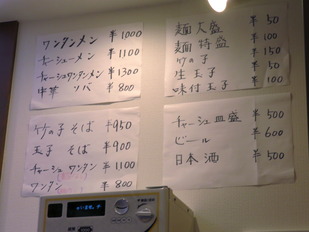 ワンタンメン ¥1000
チャーシューメン ¥1100
チャーシュワンタンメン ¥1300
中華 ソバ ¥800
竹の子 そば ¥950
玉子 そば ¥900
チャーシュ ワンタン ¥1100
ワンタン ¥800
麺大盛 ¥50
麺特盛 ¥100
竹の子 ¥150
生玉子 ¥50
味付玉子 ¥100
チャーシュ皿盛 ¥500
ビール ¥600
日本酒 ¥500